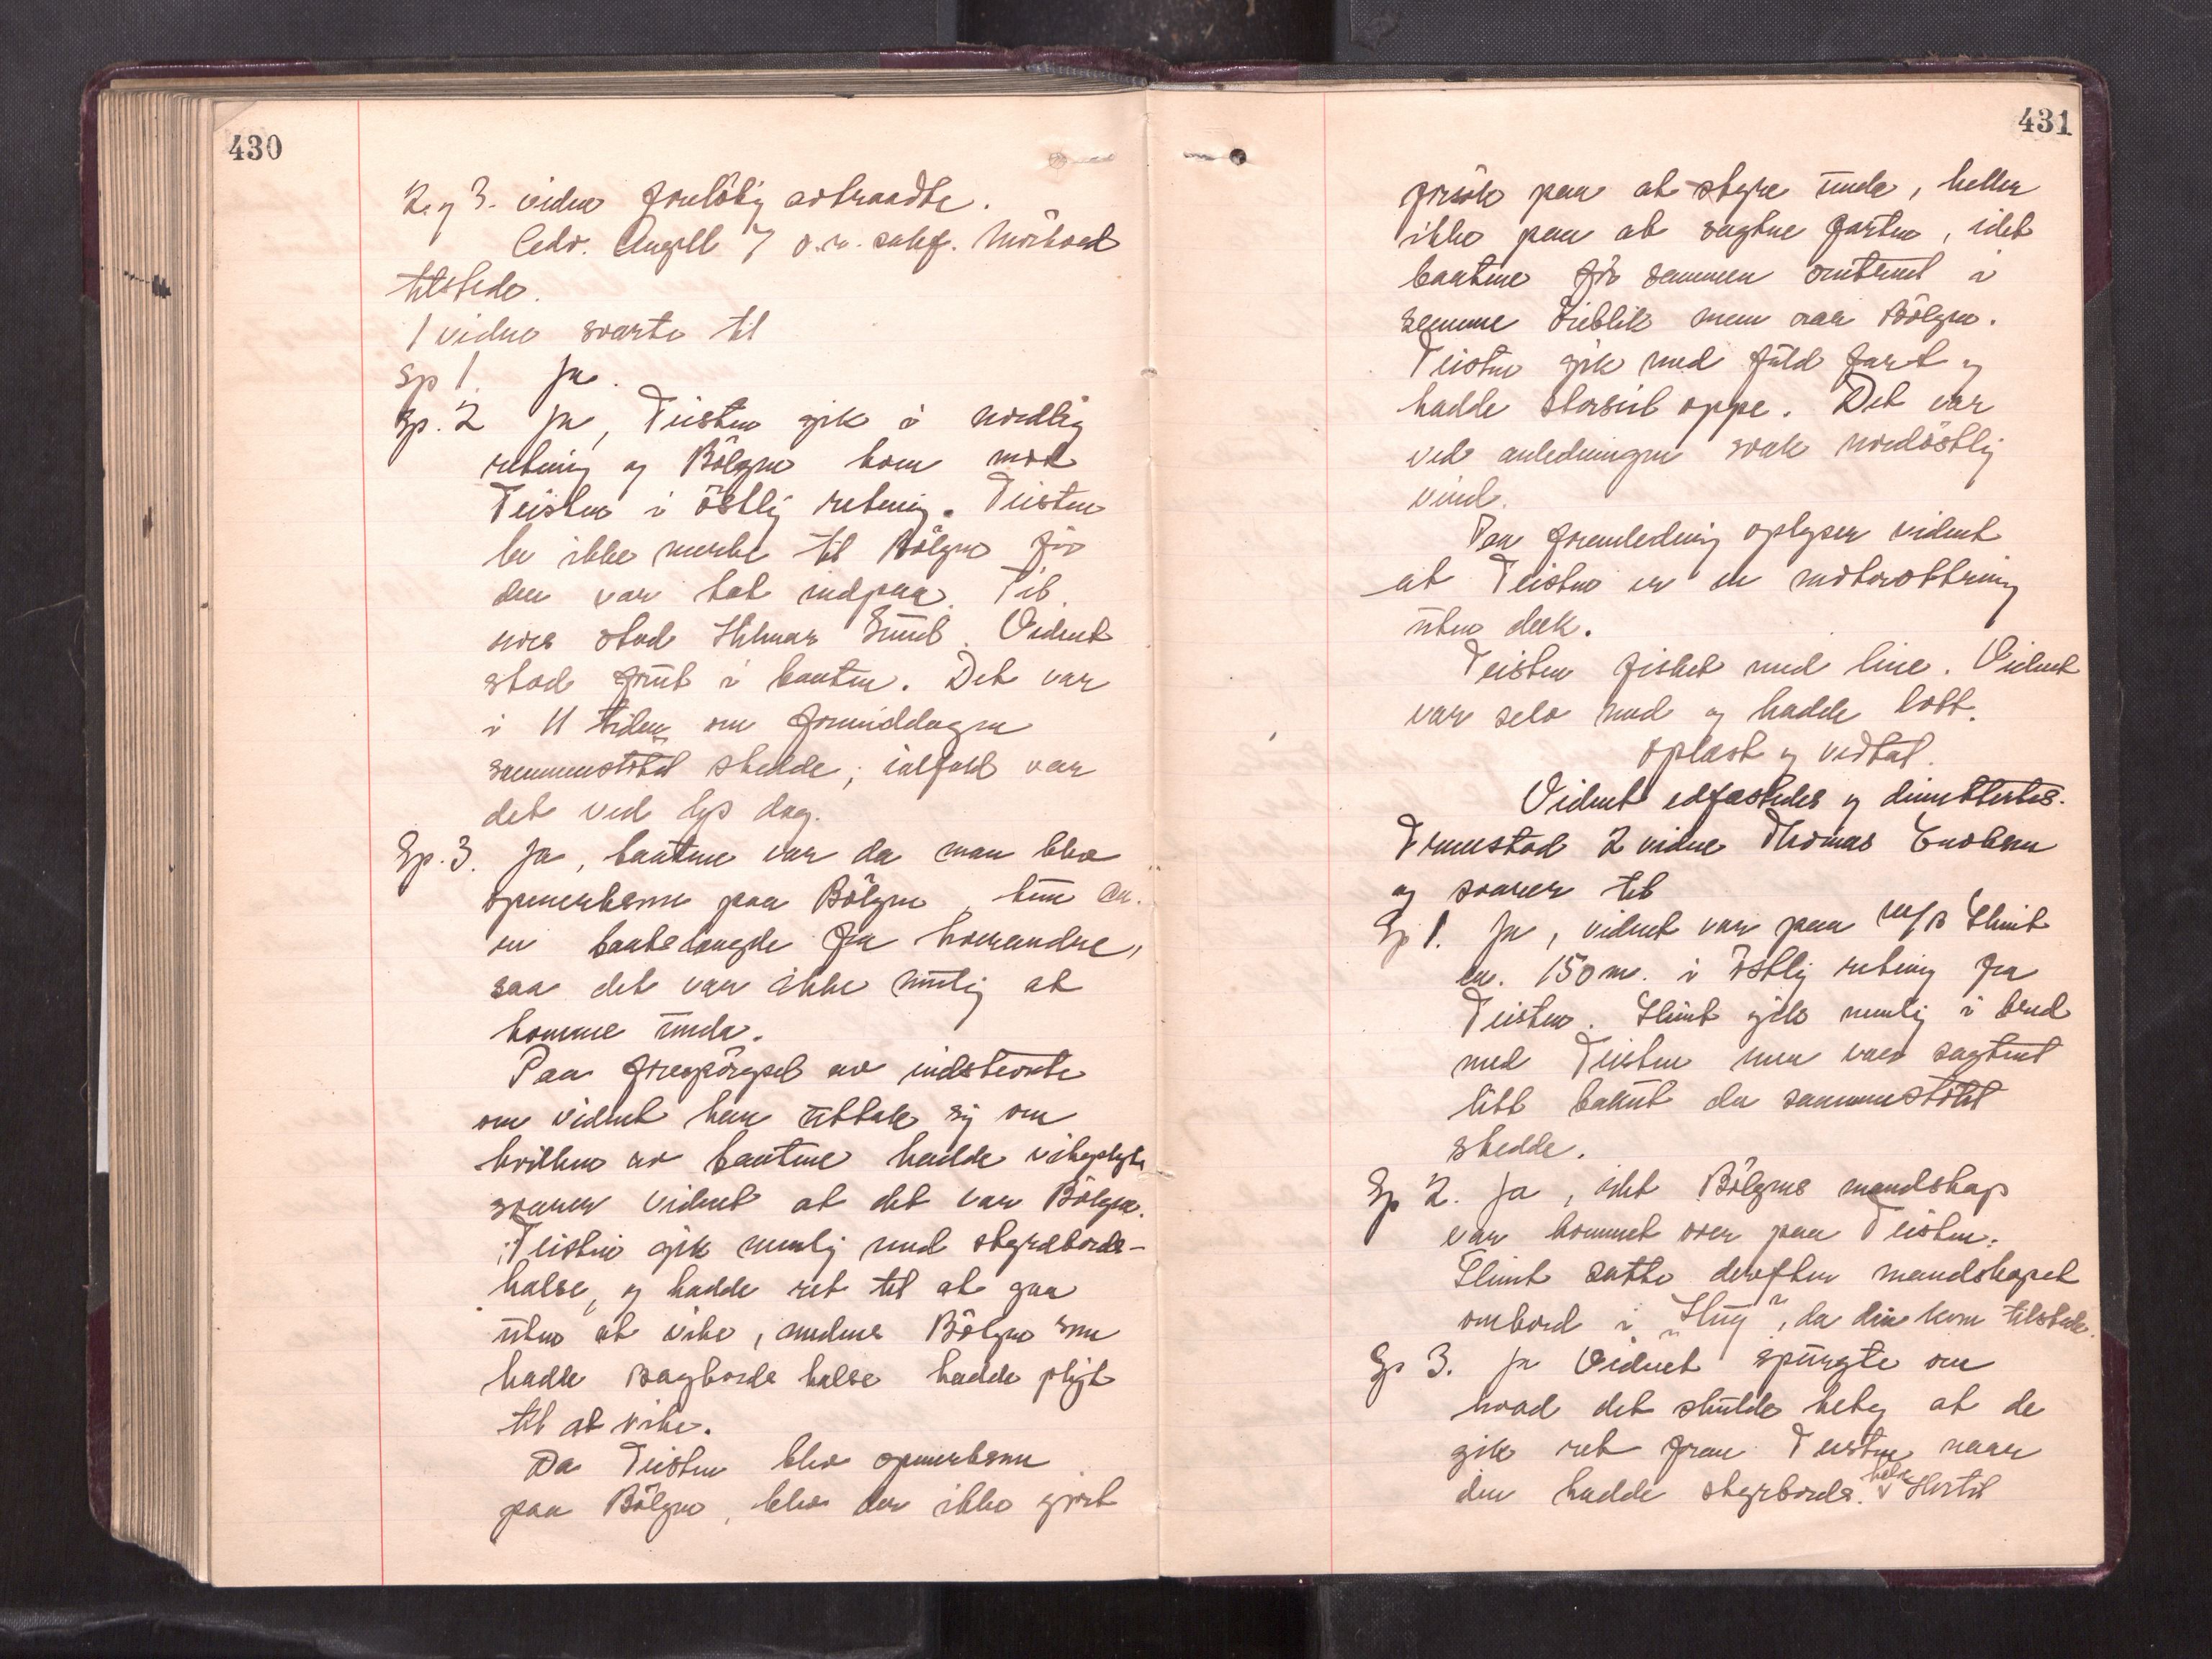 430
2. og 3. vidne foreløbig avtraadte.
tilstede.
1 vidne svarte til
Sp 1. Ja.
Sp. 2 Ja, Teisten gik i nordlig
retning og Bölgen kom mot
Teisten i östlig retning. Teisten
la ikke merke til Bölgen för
den var tæt indpaa. Til
rors stod Hilmar Emil. Vidnet
stod forut i baaten. Det var
i 11 tiden om formiddagen
sammenstötet skedde; ialfald var
det ved lys dag.
Sp. 3. Ja, baatene var da man blev
opmerksom paa Bölgen, kun ca.
en baatslængde fra hverandre,
saa det var ikke mulig at
komme unda.
Paa forespörgsel av indstevnte
om vidnet kan uttale sig om
hvilken av baatene hadde vikeplikt
svarer vidnet at det var Bölgen.
Teisten gik nemlig med styrbords-
halse, og hadde ret til at gaa
uten at vike, medens Bölgen som
hadde bagbords halse hadde pligt
til at vike.
Da Teisten blev opmerksom
paa Bölgen, blev der ikke gjort
431
forsök paa at styre unda, heller
ikke paa at sagtne farten, idet
baatene för sammen omtrent i
samme öieblik man saa Bölgen.
Teisten gik med fuld fart og
hadde storseil oppe. Det var
ved anledningen svak nordöstlig
vind.
Paa foranledning oplyser vidnet
at Teisten er en motorottring
uten dek.
Teisten fisket med line. Vidnet
var selv med og hadde lott.
Oplæst og vedtat.
Vidnet edfæstedes og dimittertes.
Fremstod 2 vidne Thomas Enoksen
og svarer til
Sp 1. Ja, vidnet var paa m/b Glimt
ca. 150 m. i östlig retning fra
Teisten. Glimt gik nemlig i bred
med Teisten men var sagtnet
litt bakut da sammenstötet
skedde.
Sp 2. Ja, idet Bölgens mandskap
var kommet over paa Teisten.
Glimt satte derefter mandskapet
ombord i "Hug", da den kom tilstede.
Sp 3. Ja Vidnet spurgte om
hvad det skulde bety at de
gik ret fram Teisten naar
den hadde styrbords halse. Hertil